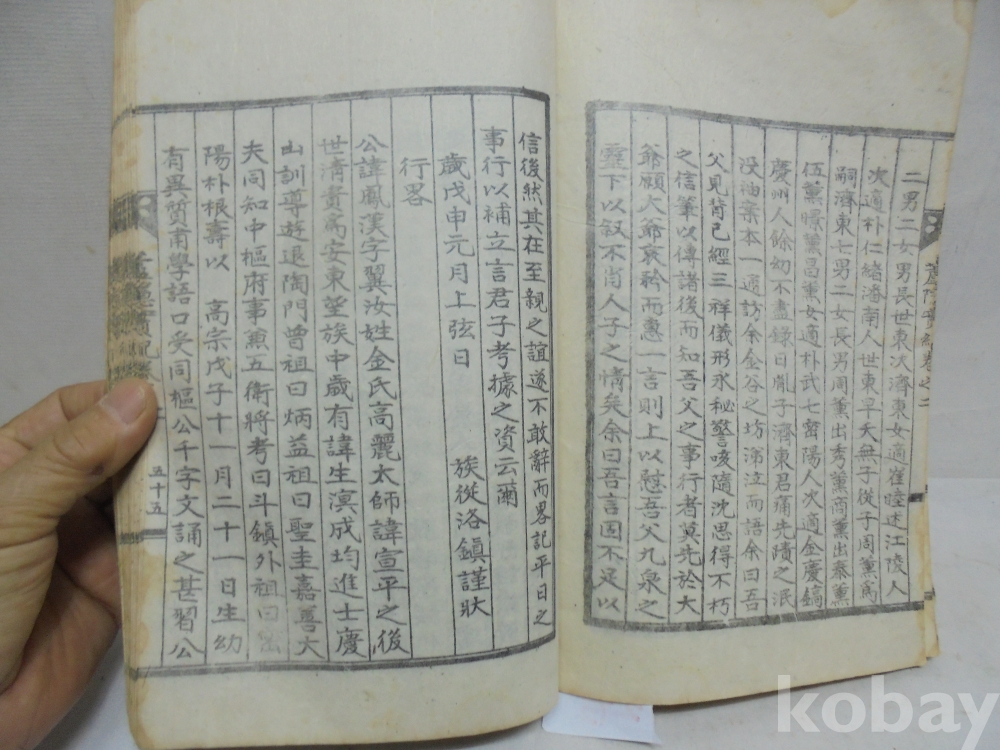 二男二女男長世東次濟東女適崔睦述江陵人
次適朴仁緒潘南人世東早夭無子從子周薰爲
嗣濟東七男二女長男周薰出秀薰商薰出泰薰
伍薰暻薰昌薰女適朴武七密陽人次適金慶鎬
慶州人餘幼不盡錄日胤子濟東君痛先蹟之泯
沒袖案本一通訪余金谷之坊涕泣而語余曰吾
父見背已經三祥儀形永秘警咳隨沈思得不朽
之信筆以傳諸後而知吾父之事行者莫先於大
爺願大爺哀矜而惠一言則上以慰吾父九泉之
靈下以叙不肖人子之情矣余曰吾言固不足以
信後然其在至親之誼遂不敢辭而畧記平日之
事行以補立言君子考據之資云爾
歲戊申元月上弦日 族從洛鎭謹狀
行畧
公諱鳳漢字翼汝姓金氏高麗太師諱宣平之後
世淸貴爲安東望族中歲有諱生溟成均進士慶
山訓導遊退陶門曾祖曰炳益祖曰聖圭嘉善大
夫同知中樞府事兼五衛將考曰斗鎭外祖曰密
陽朴根壽以 高宗戊子十一月二十一日生幼
有異質甫學語口受同樞公千字文誦之甚習公
五十五
kobay